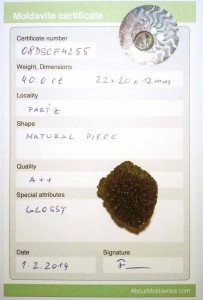 Moldavite certificate
Certificate number
08DSCF4255
Weight, Dimensions
40.0 ct 22x20x12mm
Locality
Shape
NATURAL PIECE
Quality
A++
Special attributes
GLOSSY
Date Signature
1.2.2014
AboutMoldavites.com